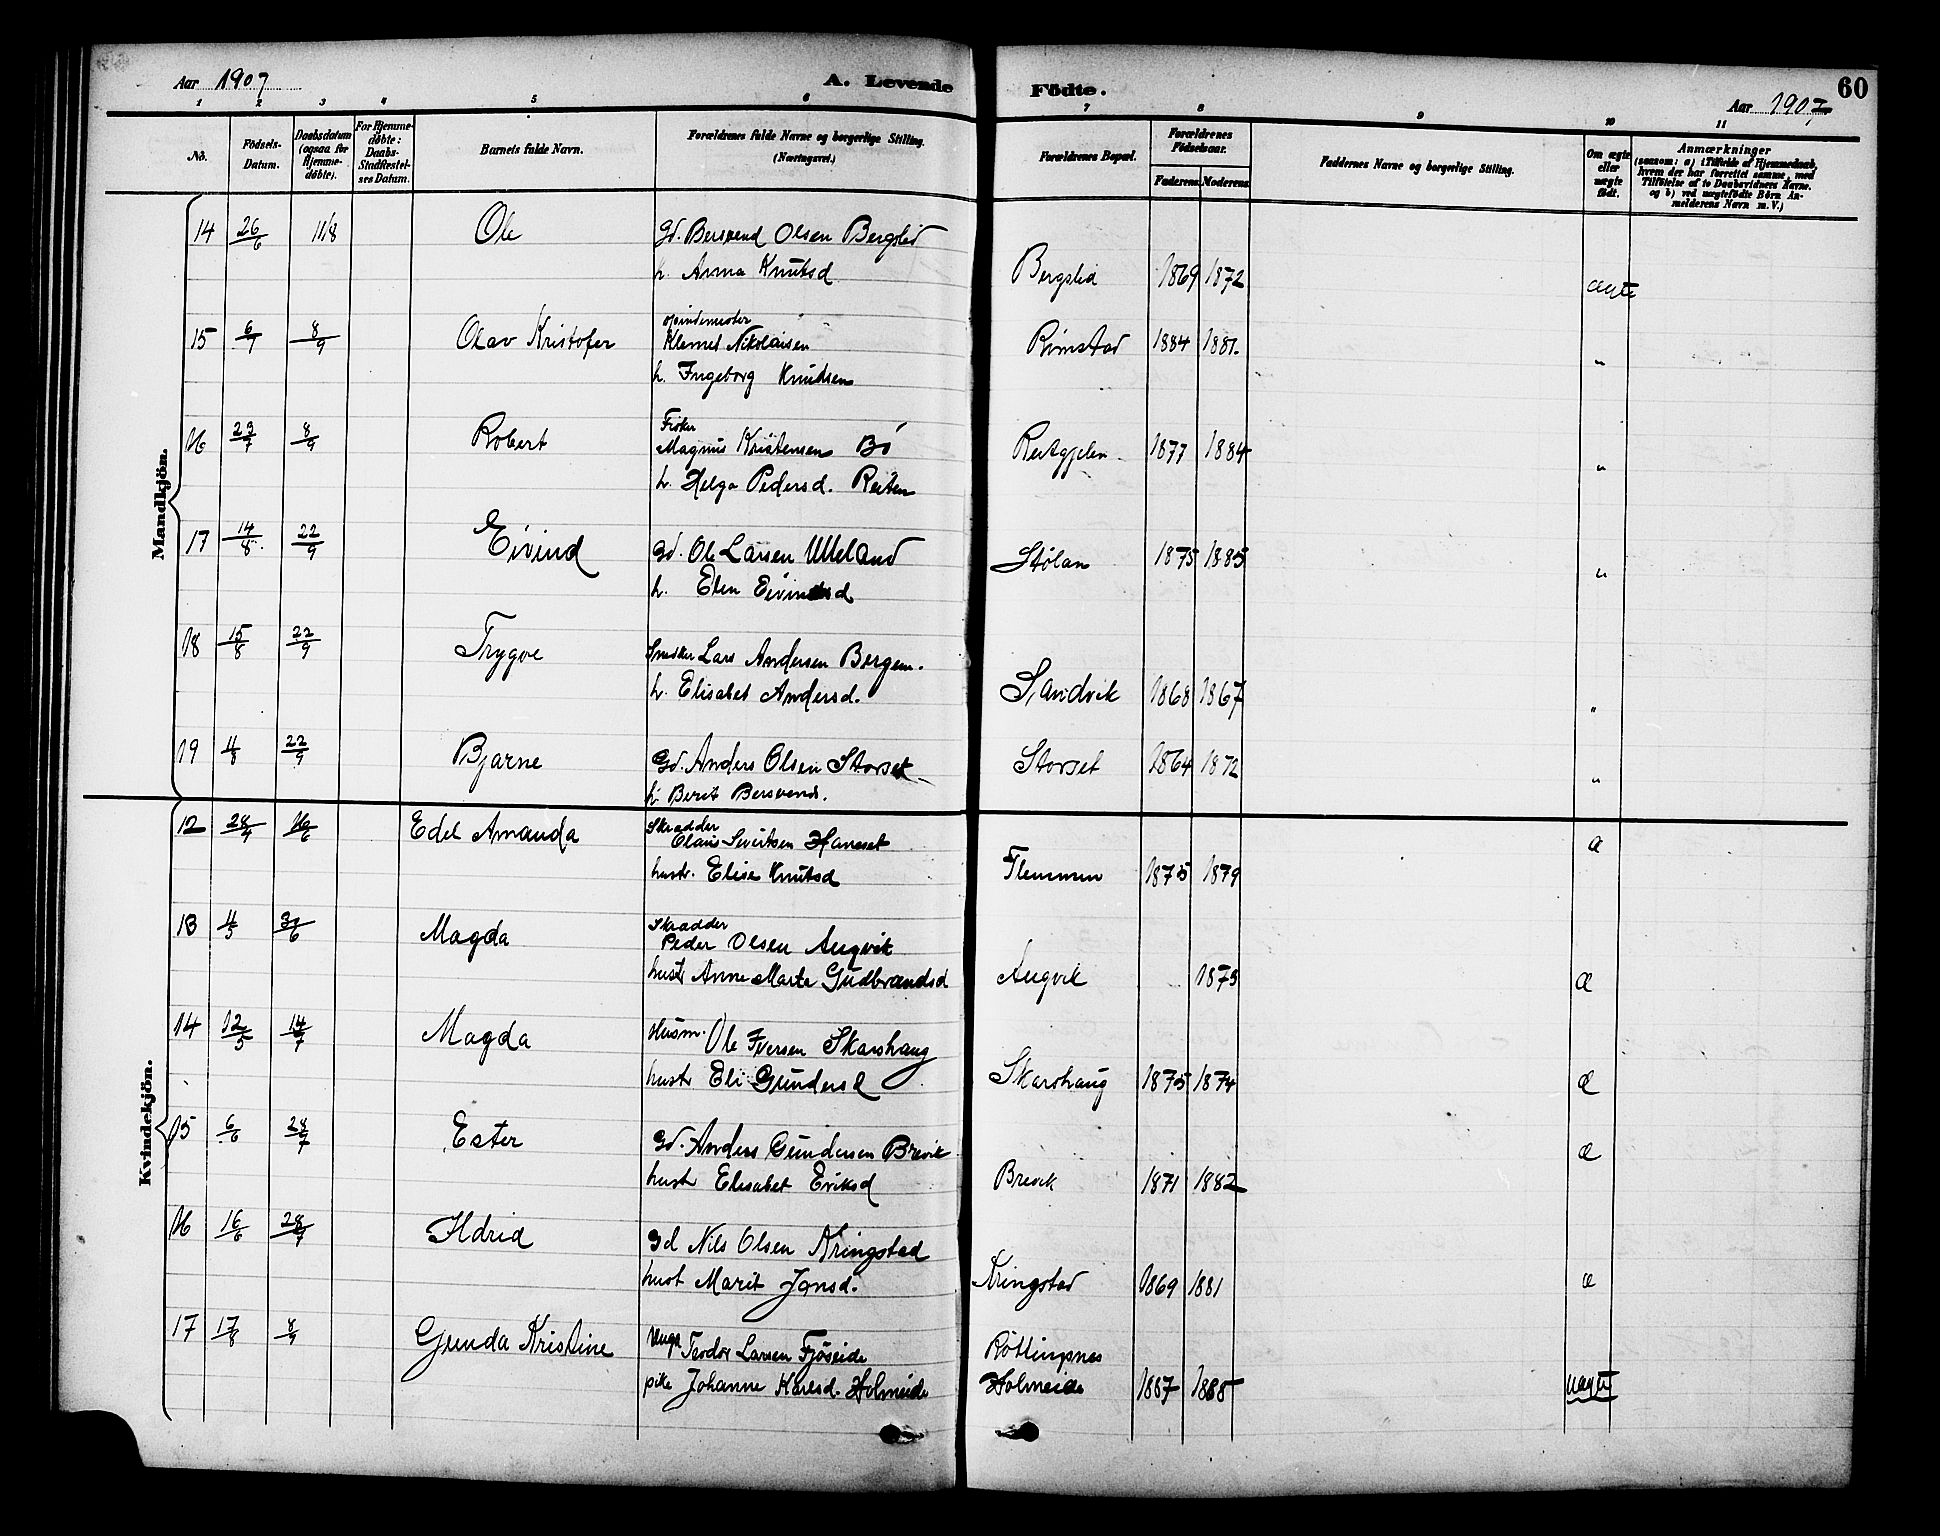 Aar 1907
A. Levende
Födte.
60
Aar 1907
1 2 3 4 5 6 7 8 9 10 11
No.
Födsels-Datum.
Daabsdatum (ogsaa for Hjemme-döbte).
For Hjemme-döbte: Daabs-Stadfæstel-ses Datum.
Barnets fulde Navn.
Forældrenes fulde Navne og borgerlige Stilling. (Næringsvei.)
Forældrenes Bopæl.
Forældrenes Födselsaar.
Faderens. Moderens.
Faddernes Navne og borgerlige Stilling.
Om ægte eller uægte födt.
Anmærkninger
(saasom: a) i Tilfælde af Hjemmedaab, hvem der har forrettet samme, med Tilföielse af to Daabsvidners Navne. og b) ved uægtefödte Börn An-melderens Navn m.V.)
Mandkjön.
14 26/6 11/8 Ole Gd. Bersvend Olsen Bergslid
h. Anna Knutsd Bergslid 1869 1872 ægte
15 6/7 8/9 Olav Kristofer
Klemet Nikolaisen Rimstad 1884 1881. "
h. Ingeborg Knudsen
16 23/7 8/9 Robert Fisker
Magnus Kristensen Bö 1877 1884 "
h. Helga Pedersd. Reiten
17 14/8 22/9 Eivind Gd. Ole Larsen Ulleland Stölan 1875 1885 "
h. Elen Eivindsd
18 15/8 22/9 Trygve Snedker Lars Andersen Bergem.
h. Elisabet Andersd. Sandvik 1868 1867 "
19 4/8 22/9 Bjarne Gd. Anders Olsen Storset Storset 1864 1872 "
h. Berit Bersvends.
Kvindekjön.
12 16/6 Edel Amanda Skradder
Olaus Sivertsen Hanset æ
hustr. Elise Knutsd Flemmen 1875 1879
13 4/5 Magda Skradder
Peder Olsen Angvik
hustr Anne Marta Gudbrandsd Angvik 1875 æ
14 12/5 14/7 Magda Husm. Ole Iversen Skarshaug
hustr Eli Gundersd Skarshaug 1875 1874 æ
15 6/6 28/7 Ester Gd. Anders Gundersen Brevik æ
hustr Elisabet Eriksd Brevik 1871 1882
16 16/6 28/7 Hdrid Gd Nils Olsen Kringstad
hust Marit Jonsd. Kringstad 1869 1881 æ
17 17/8 8/9 Gunda Kristine Ungk Teodor Larsen Fjöseide Röttingsnes
pike Johanne Karlsd. Holmeide Holmeide 1887 1885 uægte